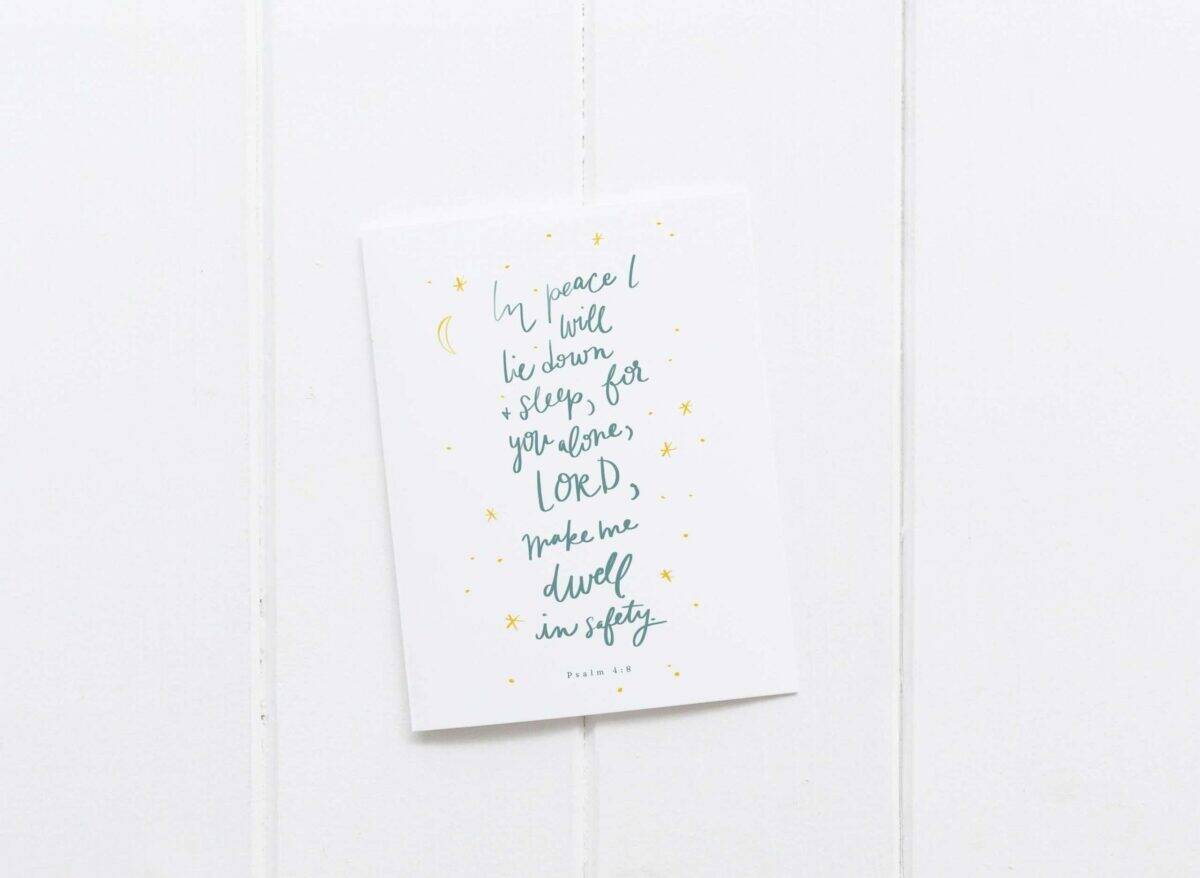 In peace I
will
lie down
+ sleep, for
you alone,
LORD,
make me
dwell
in safety.
Psalm 4:8